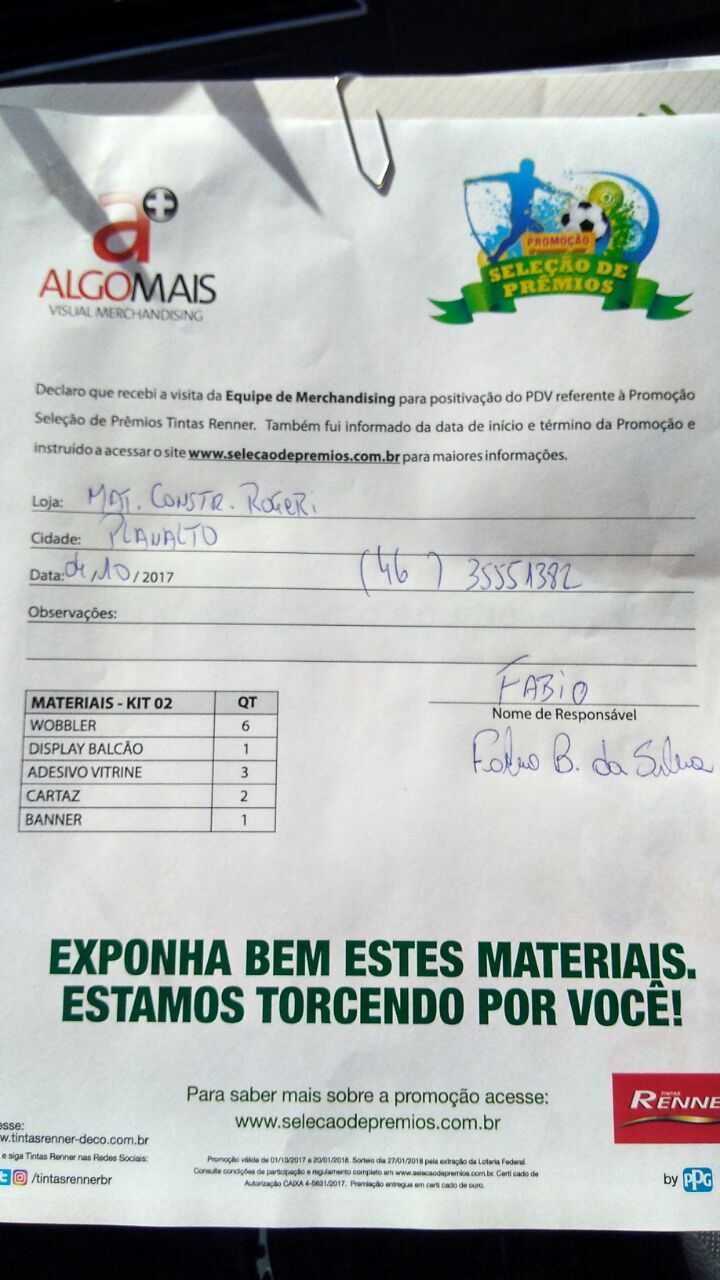 a+
ALGOMAIS
VISUAL MERCHANDISING
PROMOÇÃO
SELEÇÃO DE
PRÊMIOS
Declaro que recebi a visita da Equipe de Merchandising para positivação do PDV referente à Promoção
Seleção de Prêmios Tintas Renner. Também fui informado da data de início e término da Promoção e
instruído a acessar o site www.selecaodepremios.com.br para maiores informações.
Loja: MAT. CONSTR. ROGERI
Cidade: PLANALTO
Data: 04/10/2017 (46) 35551382
Observações:
FABIO
Nome de Responsável
Fabio B. da Silva
MATERIAIS - KIT 02 QT
WOBBLER 6
DISPLAY BALCÃO 1
ADESIVO VITRINE 3
CARTAZ 2
BANNER 1
EXPONHA BEM ESTES MATERIAIS.
ESTAMOS TORCENDO POR VOCÊ!
Para saber mais sobre a promoção acesse:
www.selecaodepremios.com.br
TINTAS
RENNE
esse:
w.tintasrenner-deco.com.br
e siga Tintas Renner nas Redes Sociais:
/tintasrennerbr
Promoção válida de 01/10/2017 a 20/01/2018. Sorteio dia 27/01/2018 pela extração da Loteria Federal.
Consulte condições de participação e regulamento completo em www.selecaodepremios.com.br. Certificado de
Autorização CAIXA 4-5631/2017. Premiação entregue em certificado de ouro.
by PPG